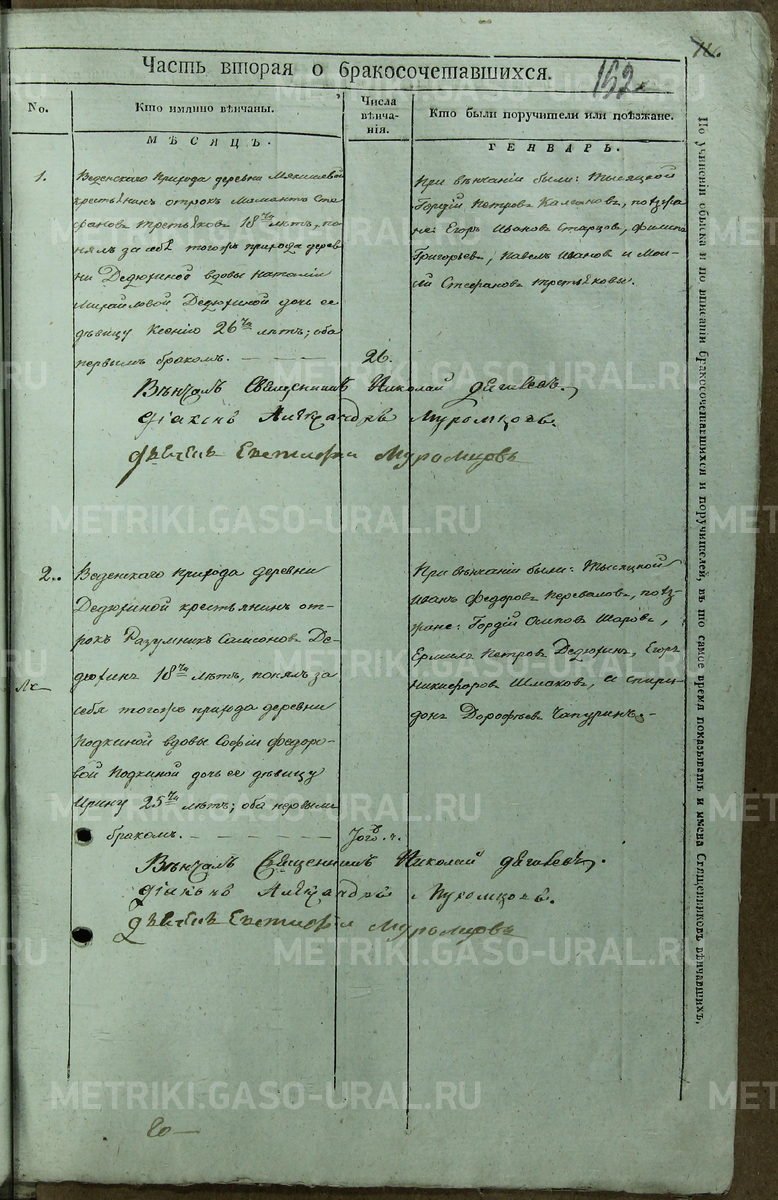 152.
Часть вторая о бракосочетавшихся.
No.
Кто именно вѣнчаны.
Числа вѣнча-нія.
Кто были поручители или поѣзжане.
МѢСЯЦЪ.
ГЕНВАРЬ.
1.
Веденскаго прихода деревни
крестьянинъ отрокъ Мамантъ Сте-
фановъ Третьяковъ 18ти лѣтъ, по-
нялъ за себѣ тогожъ прихода дерев-
ни Дедюхиной вдовы Наталіи
Михайловой Дедюхиной дочь ее
дѣвицу Ксенію 26ти лѣтъ; оба
первымъ бракомъ.
26.
При вѣнчаніи были: тысяцкой
Гордій Петровъ поѣзжа-
не: Егоръ Ивановъ Старцовъ, Филипъ
Григорьевъ, Павелъ Ивановъ и Мои-
сей Стефановъ Третьяковы.
Вѣнчалъ Священникъ Николай
Діаконъ Александръ Муромцовъ.
Муромцовъ
2.
Веденскаго прихода деревни
Дедюхиной крестьянинъ от-
рокъ Разумникъ Самсоновъ Де-
дюхинъ 18ти лѣтъ, понялъ за
себя тогожъ прихода деревни
вдовы Софіи Федоро-
вой дочь ее дѣвицу
Ирину 25ти лѣтъ; оба первымъ
бракомъ.
При вѣнчаніи были: тысяцкой
Иванъ Федоровъ Переваловъ, поѣз-
жане: Гордій Осиповъ Шаровъ,
Ермилъ Петровъ Дедюхинъ, Егоръ
Никифоровъ Шмаковъ, и Спири-
донъ Дорофѣевъ Чапуринъ.
Вѣнчалъ Священникъ Николай
Діаконъ Александръ Муромцовъ.
Муромцовъ
По учиненіи обыска и по вписаніи бракосочетавшихся и поручителей, въ то самое время показывать и имена Священниковъ вѣнчавшихъ.
METRIKI.GASO-URAL.RU